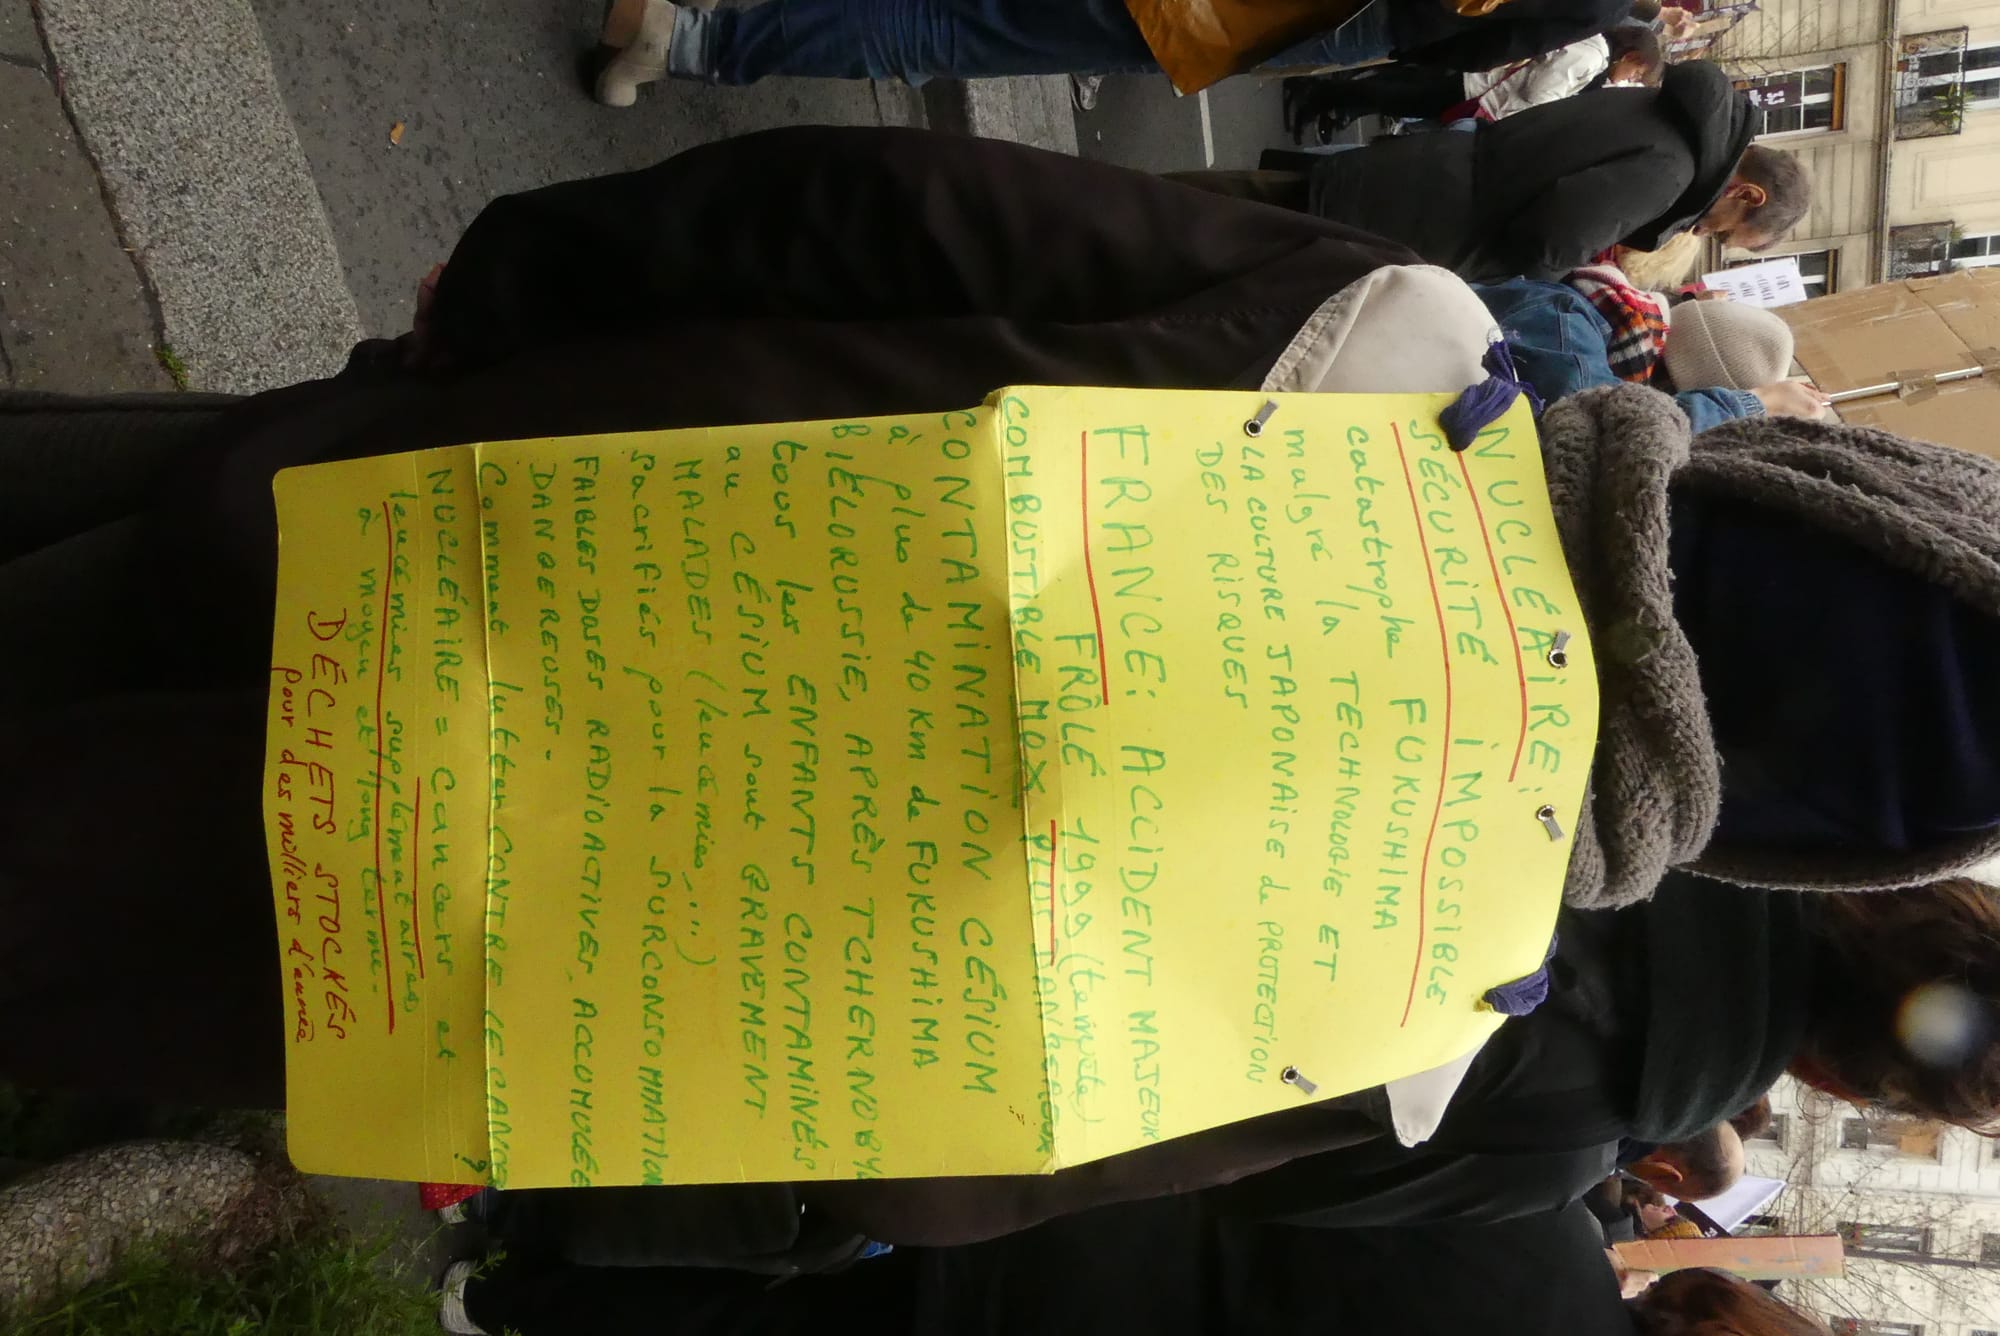 NUCLÉAIRE:
SÉCURITÉ IMPOSSIBLE
catastrophe FUKUSHIMA
malgré la TECHNOLOGIE ET
LA CULTURE JAPONAISE de PROTECTION
DES RISQUES
FRANCE: ACCIDENT MAJEUR
FRÔLÉ 1999 (tempête)
COMBUSTIBLE MOX PLUS DANGEREUX
CONTAMINATION CÉSIUM
à plus de 40 Km de FUKUSHIMA
BIÉLORUSSIE, APRÈS TCHERNOBYL
tous les ENFANTS CONTAMINÉS
au CÉSIUM sont GRAVEMENT
MALADES (leucémies,...)
sacrifiés pour la SURCONSOMMATION
FAIBLES DOSES RADIOACTIVES ACCUMULÉES
DANGEREUSES.
Comment lutter CONTRE LE CANCER ?
NUCLÉAIRE = cancers et
leucémies supplémentaires
à moyen et long terme.
DÉCHETS STOCKÉS
pour des milliers d'année